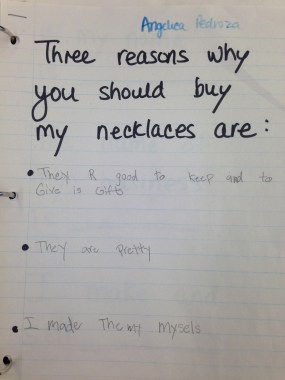 Angelica Pedroza
Three reasons why
you should buy
my necklaces are:
• They R good to keep and to
Give is Gifts
• They are Pretty
• I made Themy Mysels